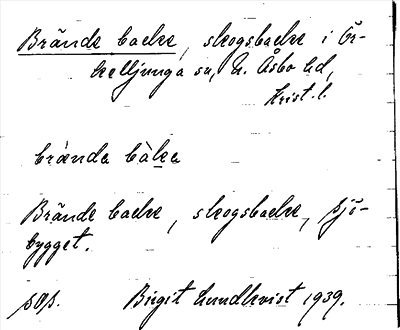 Brände backe, skogsbacke i Ör-
kelljunga sn, N. Åsbo hd,
Krist. l.
brànda bàka
Brände backe, skogsbacke, Sjö-
bygget.
sas.   Birgit Lundkvist 1939.